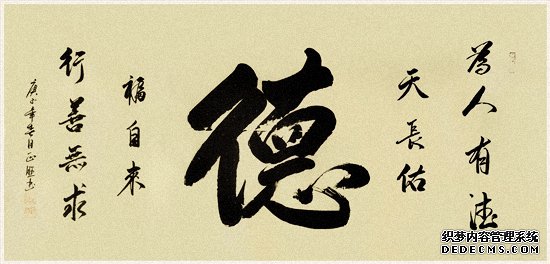 為人有德
天長佑
德
行善無求
福自來
织梦内容管理系统
DEDECMS.COM